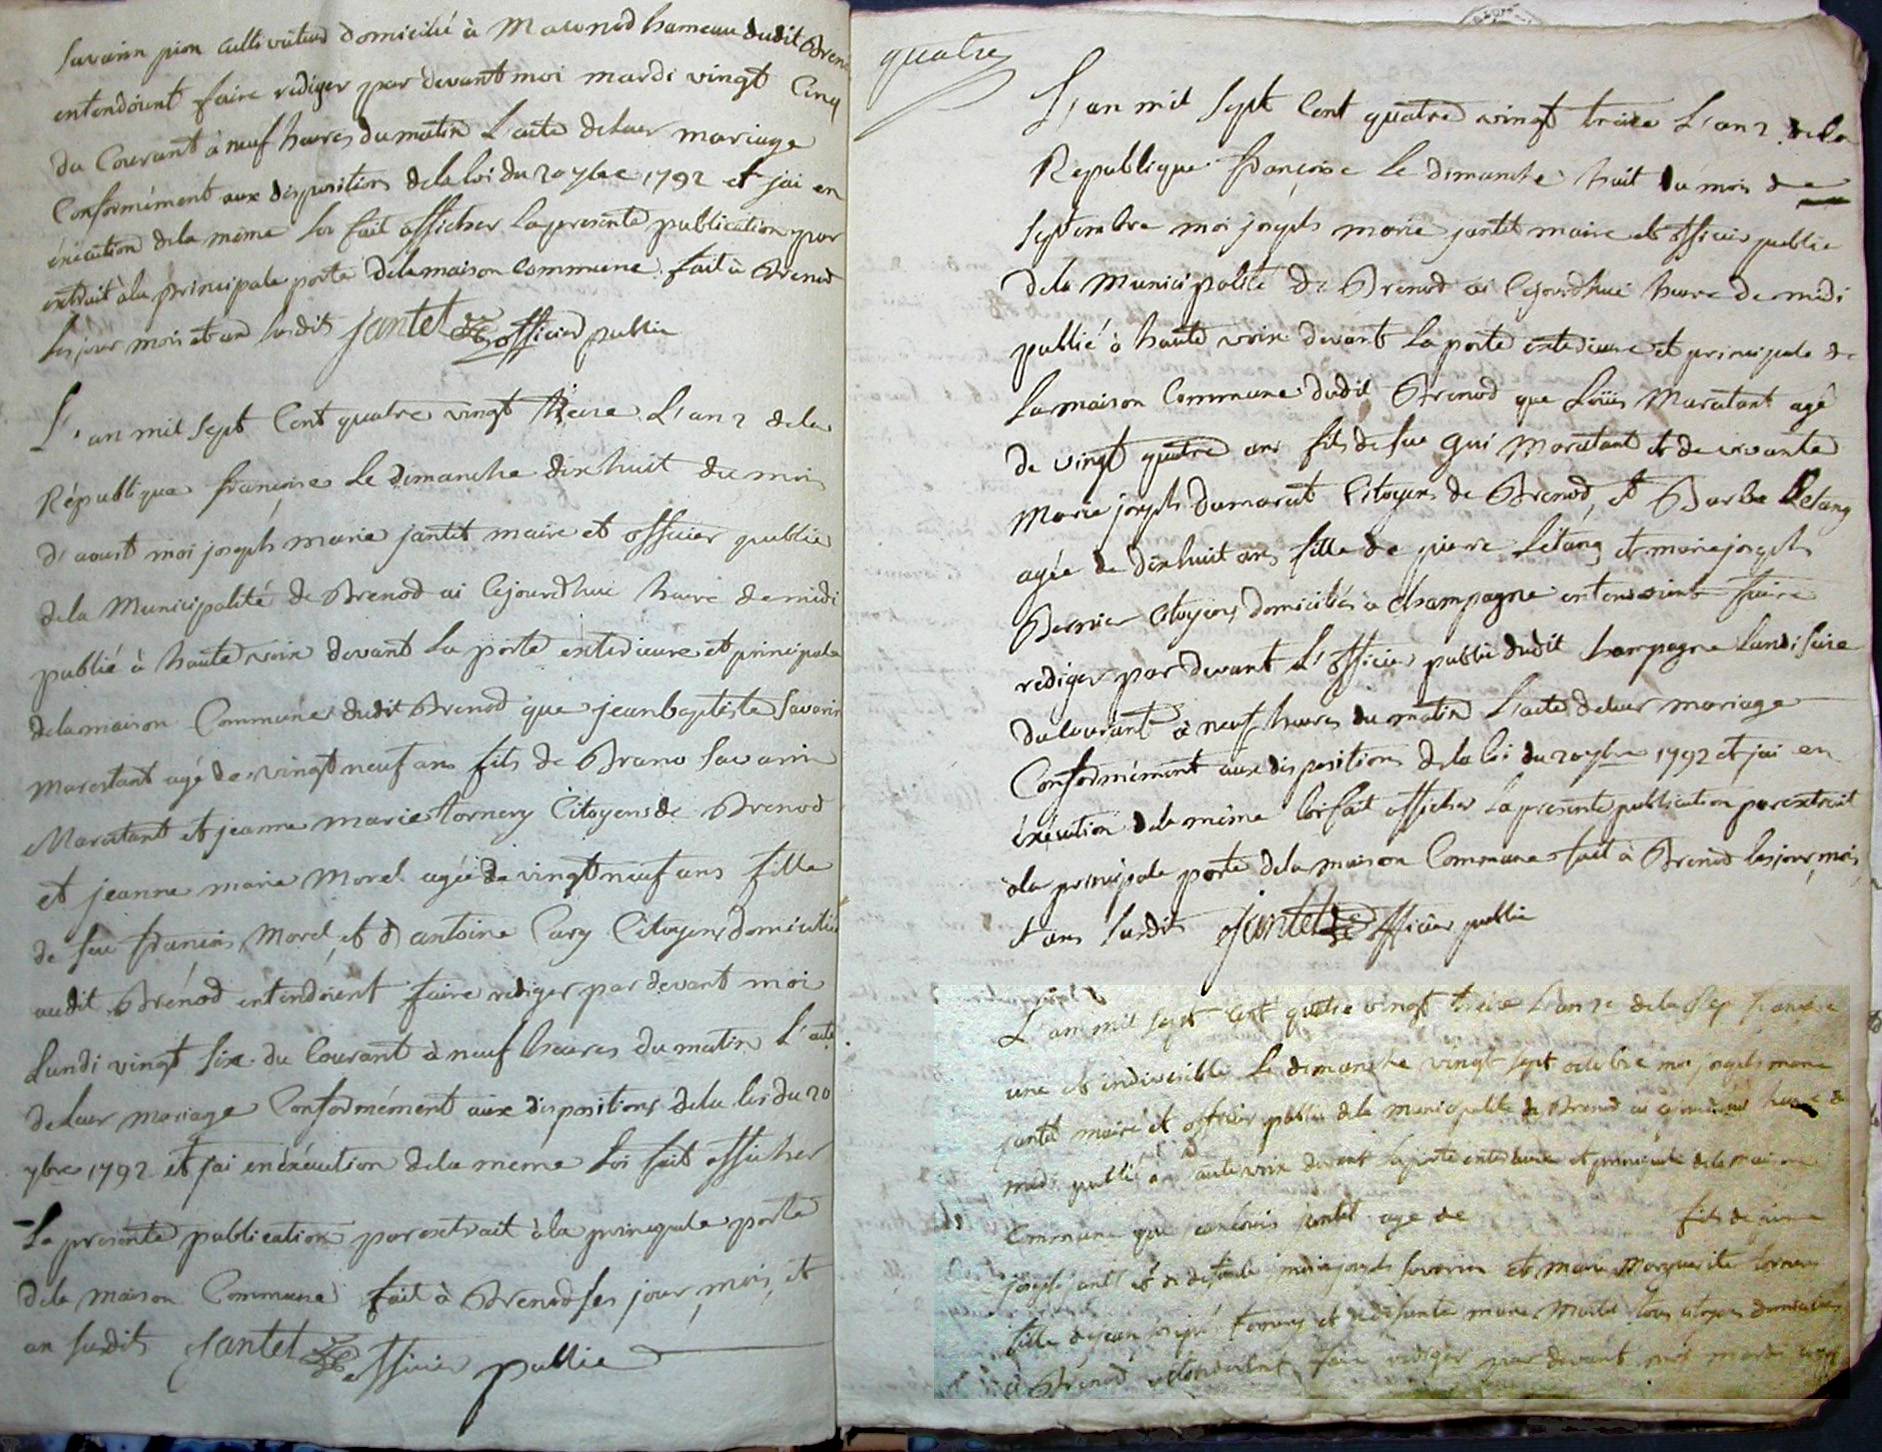 Savarin pion cultivateur domicilié à Macconod hameau dudit Breno
entendoient faire rediger par devant moi mardi vingt Cinq
du Courant à neuf heures du matin L'acte de leur mariage
Conformément aux dispositions de la loi du 20 7bre 1792 et jai en
éxécution de la même Loi fait afficher la presente publication par
extrait à la principale porte de la maison commune. fait à Brenod
Les jour mois et an susdits Jantet officier public
L'an mil sept Cent quatre vingt treize L'an 2 de la
République françoise Le dimanche dix huit du mois
d'aoust moi joseph marie jantet maire et officier public
de la Municipalité de Brenod ai cejourdhui heure de midi
publié à haute voix devant La porte exterieure et principale
de la maison Commune dudit Brenod que jean baptiste Savarin
Maratant agé de vingt neuf ans fils de Bruno Savarin
Maratant et jeanne marie tornery Citoyens de Brenod
et jeanne marie Morel agée de vingt neuf ans fille
de feu françois Morel et d'antoine Cary Citoyens domiciliés
audit Brénod entendoient faire rediger par devant moi
Lundi vingt Six du Courant à neuf heures du matin L'acte
de leur mariage Conformément aux dispositions de la loi du 20
7bre 1792 et jai en éxécution de la meme Loi fait afficher
La presente publication par extrait à la principale porte
de la maison Commune fait à Brenod les jour, mois, et
an susdits Jantet officier public
quatre
L'an mil sept Cent quatre vingt treize L'an 2 de la
Republique françoise Le dimanche huit du mois de
septembre moi joseph marie jantet maire et officier public
de la Municipalité de Brenod ai cejourdhui heure de midi
publié à haute voix devant La porte exterieure et principale de
La maison Commune dudit Brenod que Loüis Maratant agé
de vingt quatre ans fils de feu Gui Maratant et de vivante
Marie joseph dumarest Citoyens de Brenod, et Barbe Létang
agée de dix huit ans fille de pierre Létang et marie joseph
Bernier Citoyens domiciliés à Champagne entendoient faire
rediger par devant L'officier public dudit Champagne Lundi Seize
du courant à neuf heures du matin L'acte de leur mariage
Conformément aux dispositions de la loi du 20 7bre 1792 et jai en
éxécution de la même loi fait afficher La presente publication par extrait
à la principale porte de la maison Commune fait à Brenod les jour, mois,
et ans susdits Jantet officier public
L'an mil sept Cent quatre vingt treize L'an 2e de la Rep françoise
une et indivisible Le dimanche vingt sept octobre moi joseph marie
jantet maire et officier public de la municipalité de Brenod ai cejourdhui heure de
midi publié à haute voix devant La porte exterieure et principale de la maison
Commune que jean louis jantet agé de fils de
joseph jantet et de defunte marie joseph Savarin et marie Marguerite tornery
fille de jean joseph tornery et de defunte marie Martel tous citoyens domiciliés
à Brénod entendoient faire rediger par devant moi mardi